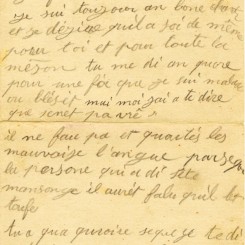 je sui toujour an bone
et je désire quil a soi de même
pour toi et pour toute la
méson tu me di an quore
pour une foi que je sui malade
ou blésit mai moi jai a te dire
que se net pa vrè
il ne fau pa et quoités les
mauvaise langue parseque
la persone qui a di sete
mansonge il aurét falu quil
tu a qua quroire se que je te di